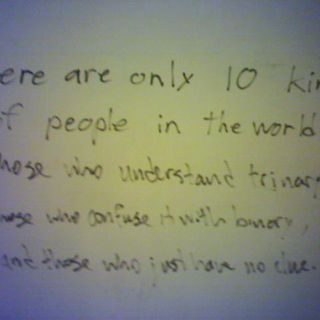 ere are only 10 kin
of people in the world
hose who understand trinary
hose who confuse it with binary,
and those who just have no clue.